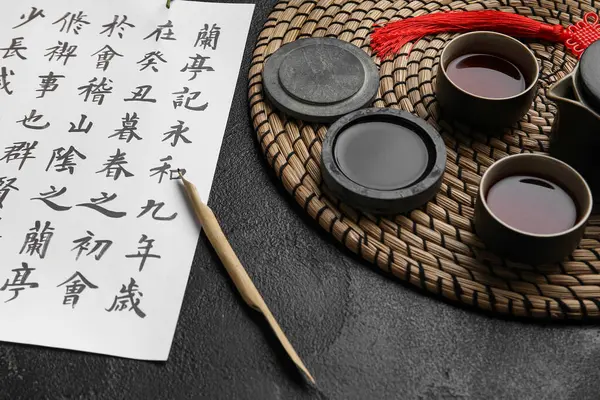 蘭亭記永和九年歲
在癸丑暮春之初會
於會稽山陰之蘭亭
修禊事也群賢
少長咸